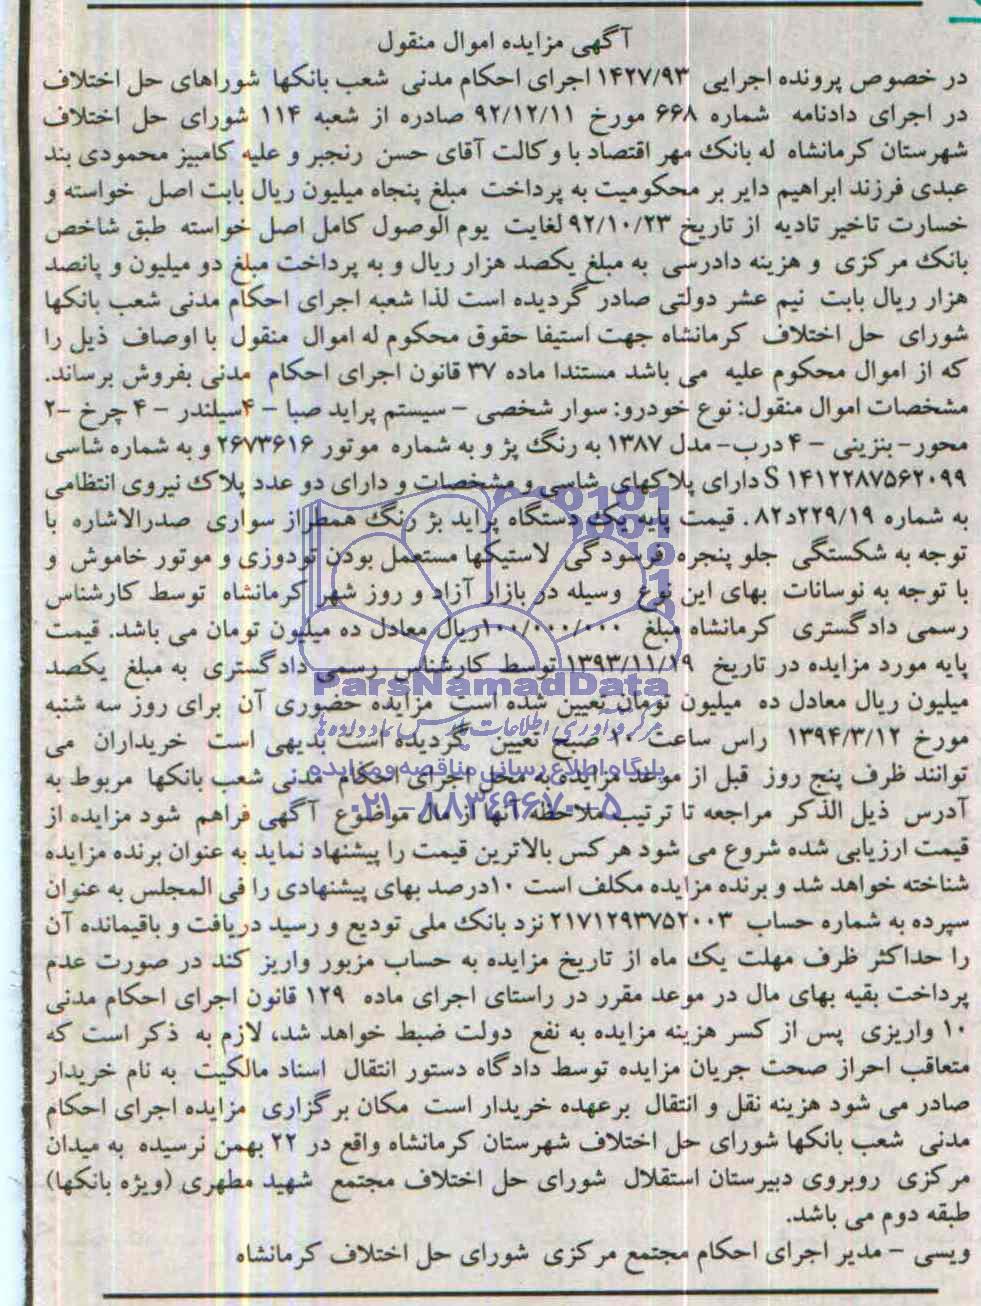 آگهی مزایده اموال منقول
در خصوص پرونده اجرایی ۱۴۲۷/۹۳ اجرای احکام مدنی شعب بانکها شوراهای حل اختلاف
در اجرای دادنامه شماره ۶۶۸ مورخ ۹۲/۱۲/۱۱ صادره از شعبه ۱۱۴ شورای حل اختلاف
شهرستان کرمانشاه له بانک مهر اقتصاد با وکالت آقای حسن رنجبر و علیه کامبیز محمودی بند
عبدی فرزند ابراهیم دایر بر محکومیت به پرداخت مبلغ پنجاه میلیون ریال بابت اصل خواسته و
خسارت تاخیر تادیه از تاریخ ۹۲/۱۰/۲۳ لغایت یوم الوصول کامل اصل خواسته طبق شاخص
بانک مرکزی و هزینه دادرسی به مبلغ یکصد هزار ریال و به پرداخت مبلغ دو میلیون و پانصد
هزار ریال بابت نیم عشر دولتی صادر گردیده است لذا شعبه اجرای احکام مدنی شعب بانکها
شورای حل اختلاف کرمانشاه جهت استیفا حقوق محکوم له اموال منقول با اوصاف ذیل را
که از اموال محکوم علیه می باشد مستندا ماده ۳۷ قانون اجرای احکام مدنی بفروش برساند.
مشخصات اموال منقول: نوع خودرو: سوار شخصی – سیستم پراید صبا – ۴سیلندر – ۴ چرخ –۲
محور– بنزینی – ۴ درب–مدل ۱۳۸۷ به رنگ پژ و به شماره موتور ۲۶۷۳۶۱۶ و به شماره شاسی
S ۱۴۱۲۲۸۷۵۶۲۰۹۹ دارای پلاکهای شاسی و مشخصات و دارای دو عدد پلاک نیروی انتظامی
به شماره ۲۲۹/۱۹د۸۲. قیمت پایه یک دستگاه پراید بژ رنگ همطراز سواری صدرالاشاره با
توجه به شکستگی جلو پنجره فرسودگی لاستیکها مستعمل بودن تودوزی و موتور خاموش و
با توجه به نوسانات بهای این نوع وسیله در بازار آزاد و روز شهر کرمانشاه توسط کارشناس
رسمی دادگستری کرمانشاه مبلغ ۱۰۰/۰۰۰/۰۰۰ریال معادل ده میلیون تومان می باشد. قیمت
پایه مورد مزایده در تاریخ ۱۳۹۳/۱۱/۱۹ توسط کارشناس رسمی دادگستری به مبلغ یکصد
میلیون ریال معادل ده میلیون تومان تعیین شده است مزایده حضوری آن برای روز سه شنبه
مورخ ۱۳۹۴/۳/۱۲ راس ساعت ۱۰ صبح تعیین گردیده است بدیهی است خریداران می
توانند ظرف پنج روز قبل از موعد مزایده به محل اجرای احکام مدنی شعب بانکها مربوط به
آدرس ذیل الذکر مراجعه تا ترتیب ملاحظه آنها از مال موضوع آگهی فراهم شود مزایده از
قیمت ارزیابی شده شروع می شود هر کس بالاترین قیمت را پیشنهاد نماید به عنوان برنده مزایده
شناخته خواهد شد و برنده مزایده مکلف است ۱۰درصد بهای پیشنهادی را فی المجلس به عنوان
سپرده به شماره حساب ۲۱۷۱۲۹۳۷۵۲۰۰۳ نزد بانک ملی تودیع و رسید دریافت و باقیمانده آن
را حداکثر ظرف مهلت یک ماه از تاریخ مزایده به حساب مزبور واریز کند در صورت عدم
پرداخت بقیه بهای مال در موعد مقرر در راستای اجرای ماده ۱۲۹ قانون اجرای احکام مدنی
۱۰ واریزی پس از کسر هزینه مزایده به نفع دولت ضبط خواهد شد، لازم به ذکر است که
متعاقب احراز صحت جریان مزایده توسط دادگاه دستور انتقال اسناد مالکیت به نام خریدار
صادر می شود هزینه نقل و انتقال برعهده خریدار است مکان برگزاری مزایده اجرای احکام
مدنی شعب بانکها شورای حل اختلاف شهرستان کرمانشاه واقع در ۲۲ بهمن نرسیده به میدان
مرکزی روبروی دبیرستان استقلال شورای حل اختلاف مجتمع شهید مطهری (ویژه بانکها)
طبقه دوم می باشد.
ویسی – مدیر اجرای احکام مجتمع مرکزی شورای حل اختلاف کرمانشاه
ParsNamadData
مرکز فرآوری اطلاعات پارس نماد داده ها
پایگاه اطلاع رسانی مناقصه و مزایده
۰۲۱–۸۸۳۴۹۶۷۰–۵